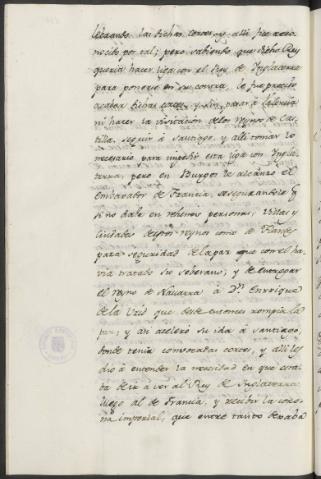 lebrando las dichas cortes, y alli fue reco-
nocido por tal; pero sabiendo que dicho Rey
queria hacer liga con el Rey de Inglaterra
para ponerse en su contra, le fue preciso
acabar dichas cortes, y sin pasar a Valencia
ni hacer la visitacion de los Reynos de Cas-
tilla, seguir à Santiago, y alli tomar lo
necesario para impedir esta liga con Ingla-
terra; pero en Burgos le alcanzó el
Embaxador de Francia asegurandole q.
si no daba en rehenes personas, Villas y
Ciudades de sus reynos como de Flandes
para seguridad de la paz que con el ha-
via tratado su soberano; y de entregar
el reyno de Navarra à Dn. Enrrique
de la Vrit que desde entonces rompia la
paz; y asi aceleró su ida à Santiago,
donde tenia convocadas cortes, y alli les
dió à entender la necesidad en que esta-
ba de ir à ver al Rey de Inglaterra
luego al de Francia, y recibir la coro-
na imperial, que entre tanto dexaba